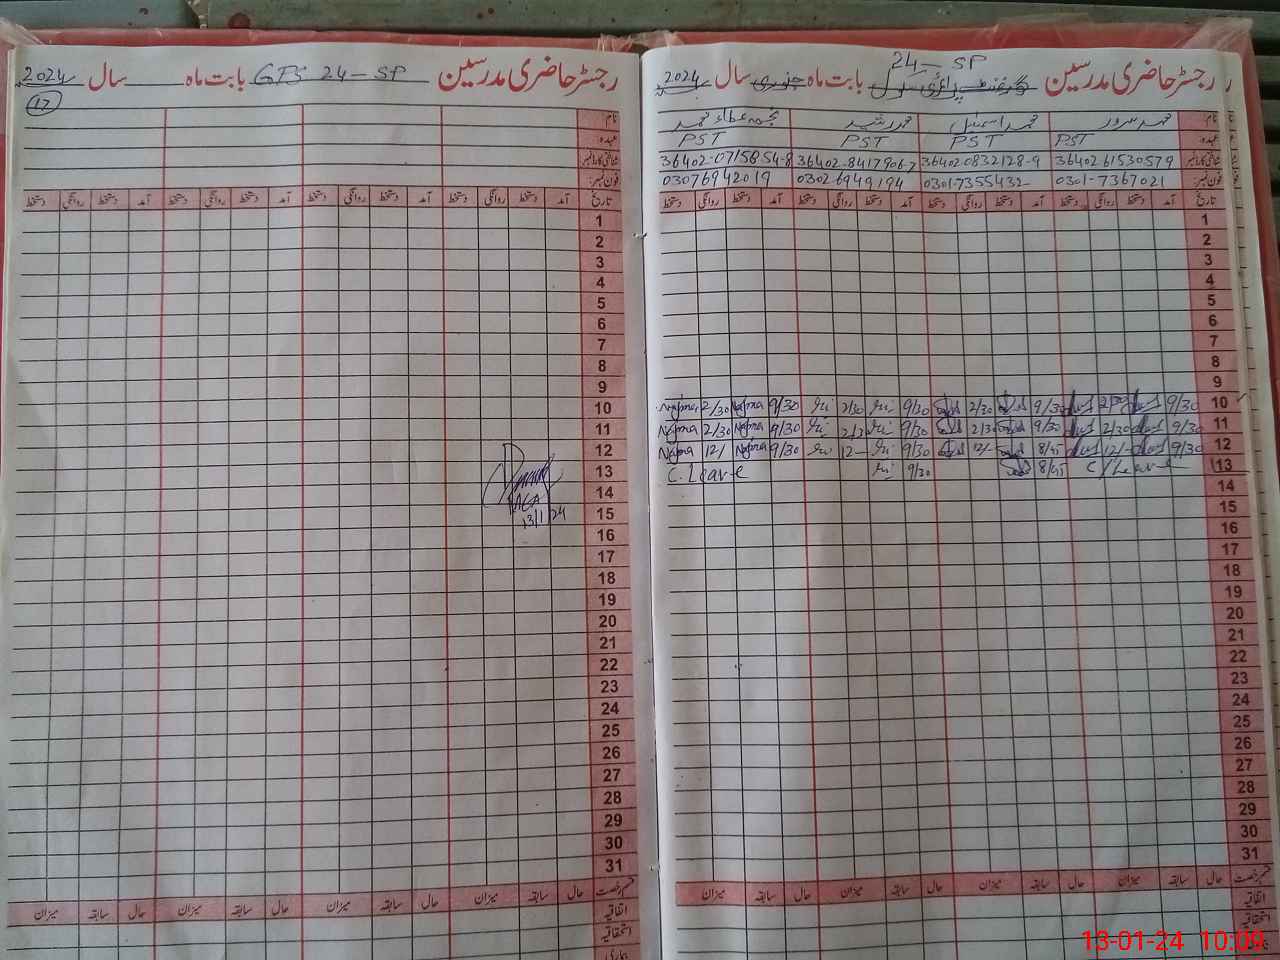 رجسٹر حاضری مدرسین بابت ماہ GPS 24-SP سال 2024
17
نام
عہدہ
شناختی کارڈ نمبر
فون نمبر
تاریخ آمد دستخط روانگی دستخط آمد دستخط روانگی دستخط آمد دستخط روانگی دستخط آمد دستخط روانگی دستخط
1
2
3
4
5
6
7
8
9
10
11
12
13
14
15
13/1/24
16
17
18
19
20
21
22
23
24
25
26
27
28
29
30
31
قسم رخصت حال سابقہ میزان حال سابقہ میزان حال سابقہ میزان حال سابقہ میزان
اتفاقیہ
استحقاقیہ
بیماری
24-SP
رجسٹر حاضری مدرسین گورنمنٹ پرائمری سکول بابت ماہ جنوری سال 2024
نام محمد سرور محمد اسماعیل محمد رشید نجمہ عطاء محمد
عہدہ PST PST PST PST
شناختی کارڈ نمبر 36402-61530579 36402-0832128-9 36402-8417906-7 36402-0715854-8
فون نمبر 0301-7367021 0301-7355432 0302-6949194 03076942019
تاریخ آمد دستخط روانگی دستخط آمد دستخط روانگی دستخط آمد دستخط روانگی دستخط آمد دستخط روانگی دستخط
1
2
3
4
5
6
7
8
9
10 9/30 2/30 9/30 2/30 9/30 2/30 9/30 Najma 2/30 Najma
11 9/30 2/30 9/30 2/30 9/30 2/30 9/30 Najma 2/30 Najma
12 9/30 12/- 8/45 12/- 9/30 12- 9/30 Najma 12/ Najma
13 C/Leave 8/45 9/30 C. Leave
14
15
16
17
18
19
20
21
22
23
24
25
26
27
28
29
30
31
قسم رخصت حال سابقہ میزان حال سابقہ میزان حال سابقہ میزان حال سابقہ میزان
اتفاقیہ
استحقاقیہ
13-01-24 10:09